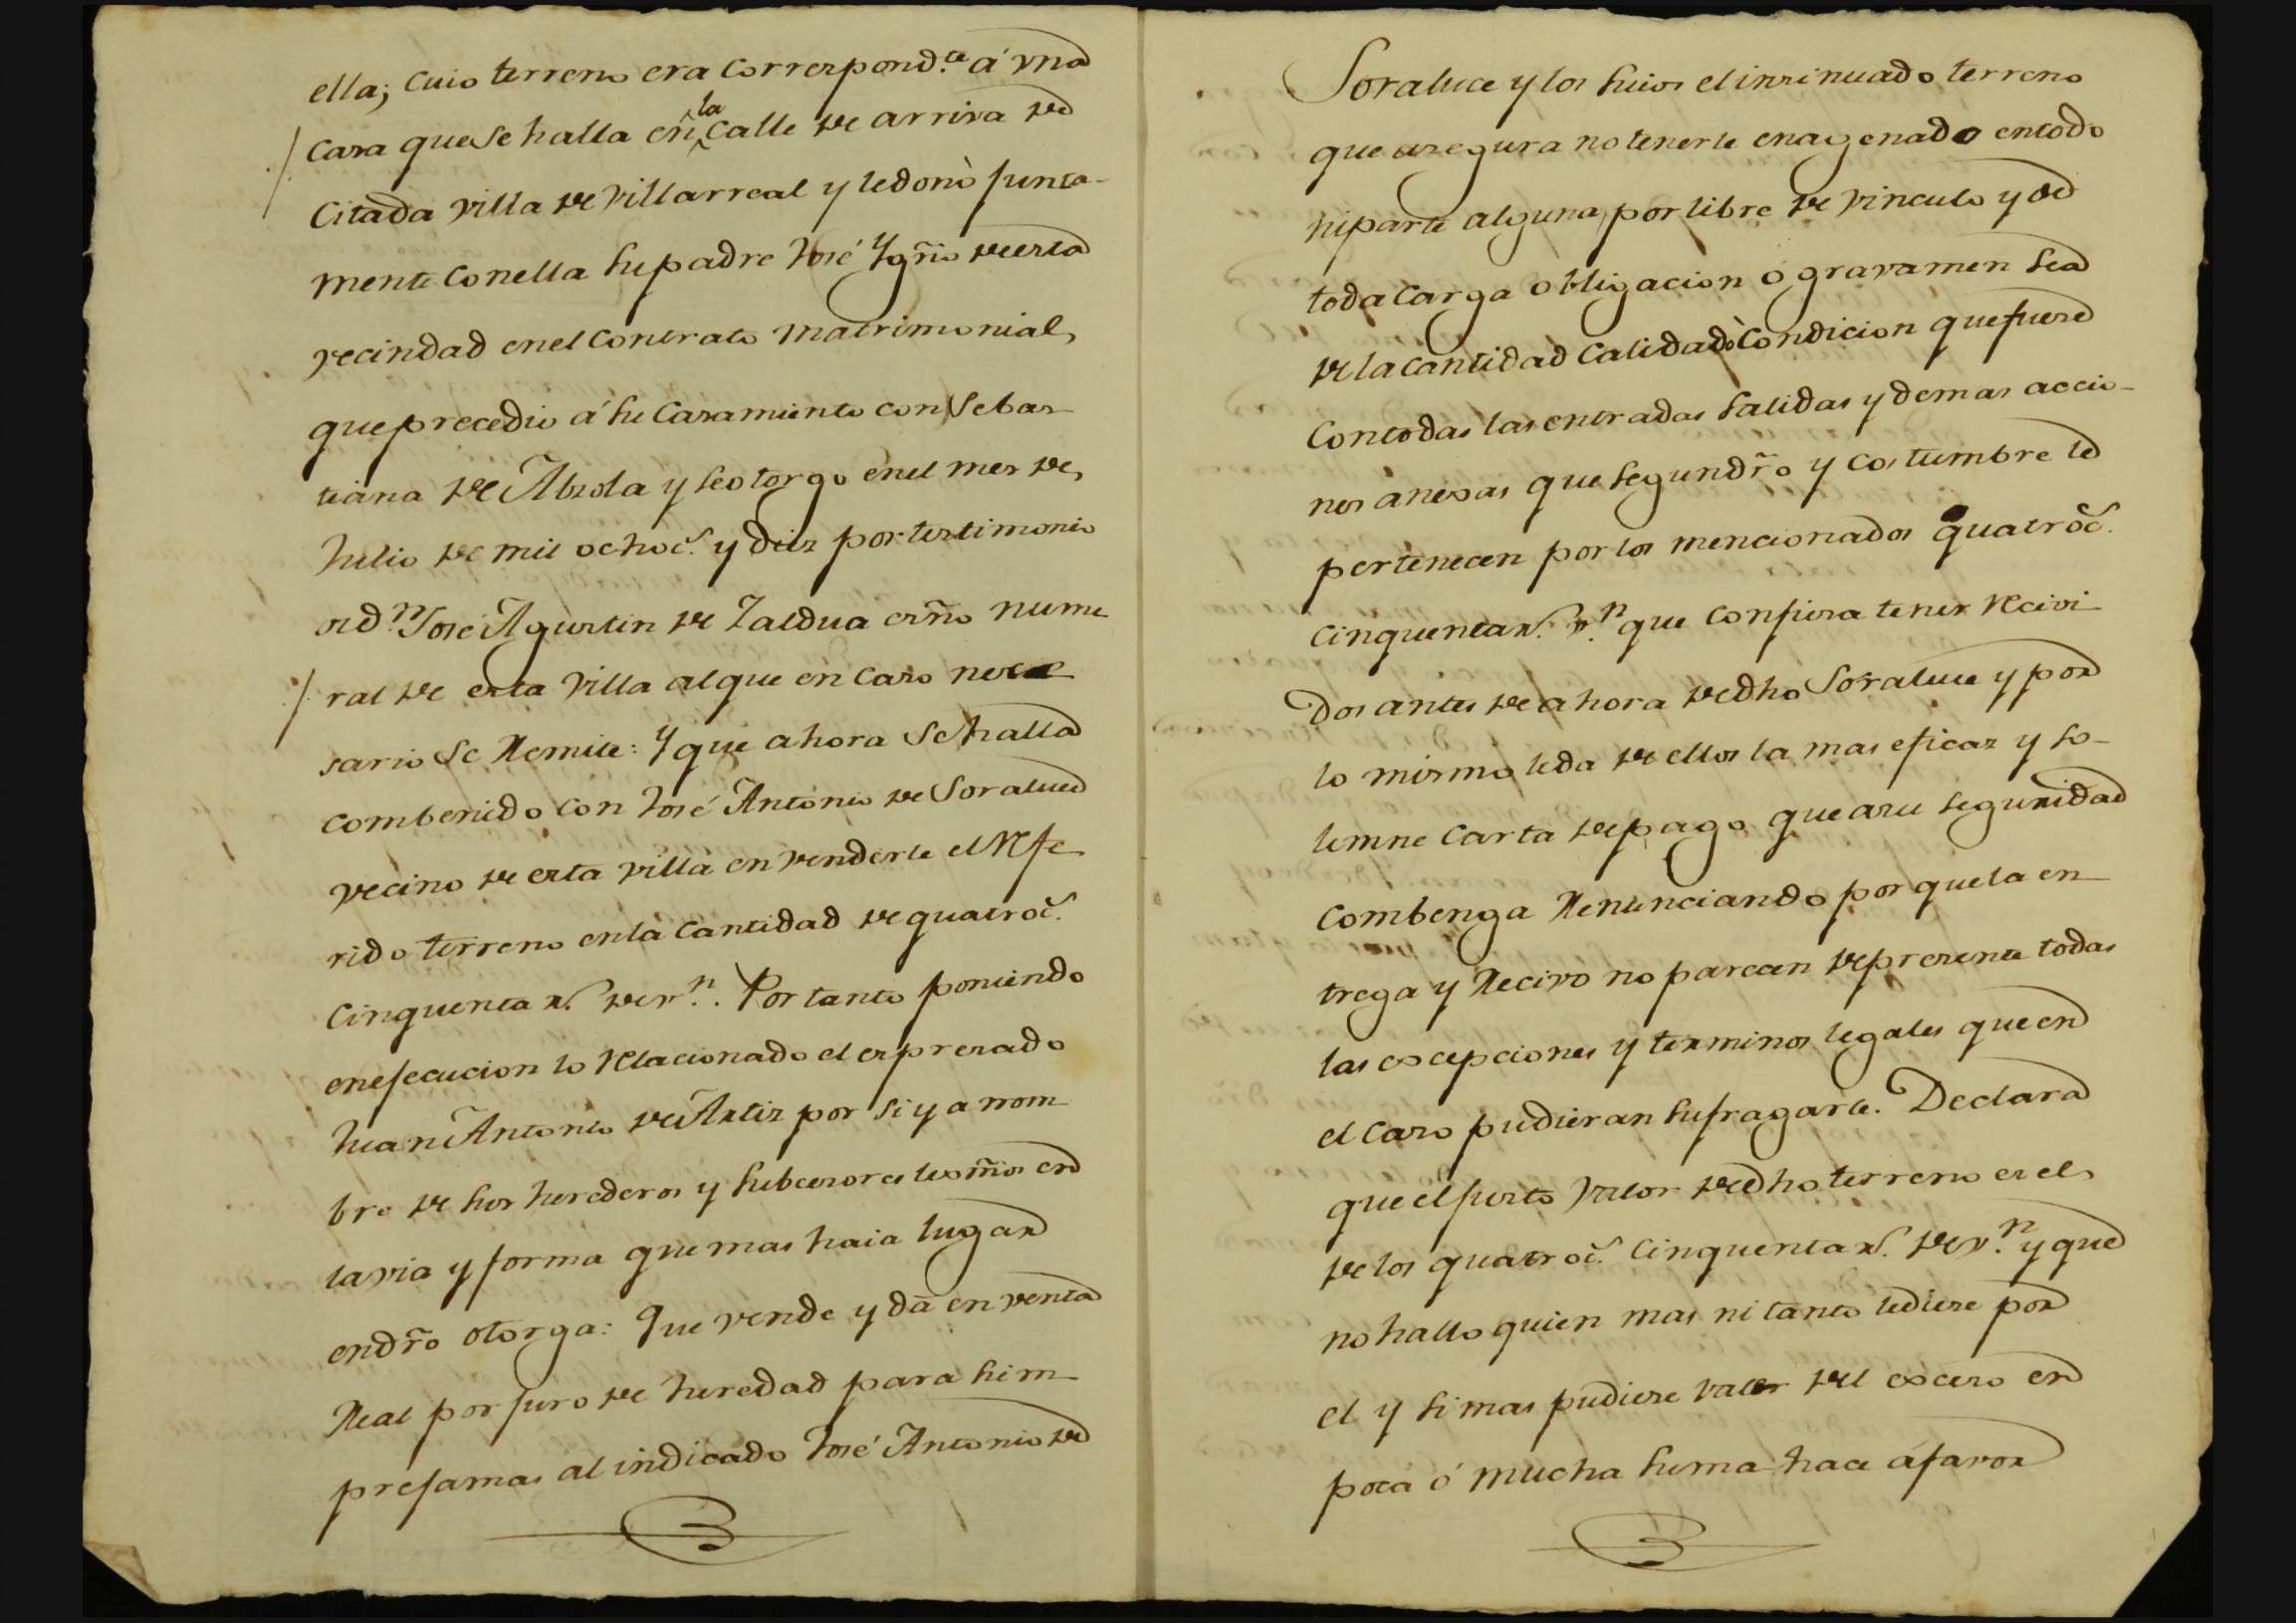 ella; cuio terreno era correspond.te á vna
casa que se halla en la Calle de arriva de
citada villa de Villarreal y le donò junta-
mente con ella su padre José Ygñio de esta
vecindad en el contrato matrimonial,
que precedio á su casamiento con Sebas-
tiana de Abzola y se otorgo en el mes de
Julio de mil ochoc.s y diez por testimonio
de d.n José Agustin de Zaldua esño nume-
ral de esta villa al que en caso nece-
sario se Remite: Y que ahora se halla
combenido con José Antonio de Soraluce
vecino de esta villa en venderle el Refe-
rido terreno en la cantidad de quatroc.s
cinquenta r.s de v.n. Por tanto poniendo
en ejecucion lo Relacionado el espresado
Juan Antonio de Artiz por si y a nom-
bre de sus herederos y subcesores lexmos en
la via y forma que mas haia lugar
en dr̃o otorga: Que vende y dá en venta
Real por juro de heredad para siem-
prejamas al indicado José Antonio de
Soraluce y los suios el insinuado terreno
que asegura no tenerle enagenado en todo
ni parte alguna, por libre de vinculo y de
toda carga obligacion o gravamen sea
de la cantidad calidad ò condicion que fuere
con todas las entradas salidas y demas accio-
nes anexas que segun dr̃o y costumbre le
pertenecen por los mencionados quatroc.s
cinquenta r.s v.n que confiesa tener Recivi-
dos antes de ahora de dho Soraluce y por
lo mismo le da de ellos la mas eficaz y so-
lemne carta de pago que a su seguridad
combenga Renunciando por que la en-
trega y Recivo no parecen de presente todas
las excepciones y terminos legales que en
el caso pudieran sufragarle. Declara
que el justo valor de dho terreno es el
de los quatroc.s cinquenta r.s de v.n y que
no hallo quien mas ni tanto le diese por
el y si mas pudiese valer del exceso en
poca ó mucha suma hace á favor